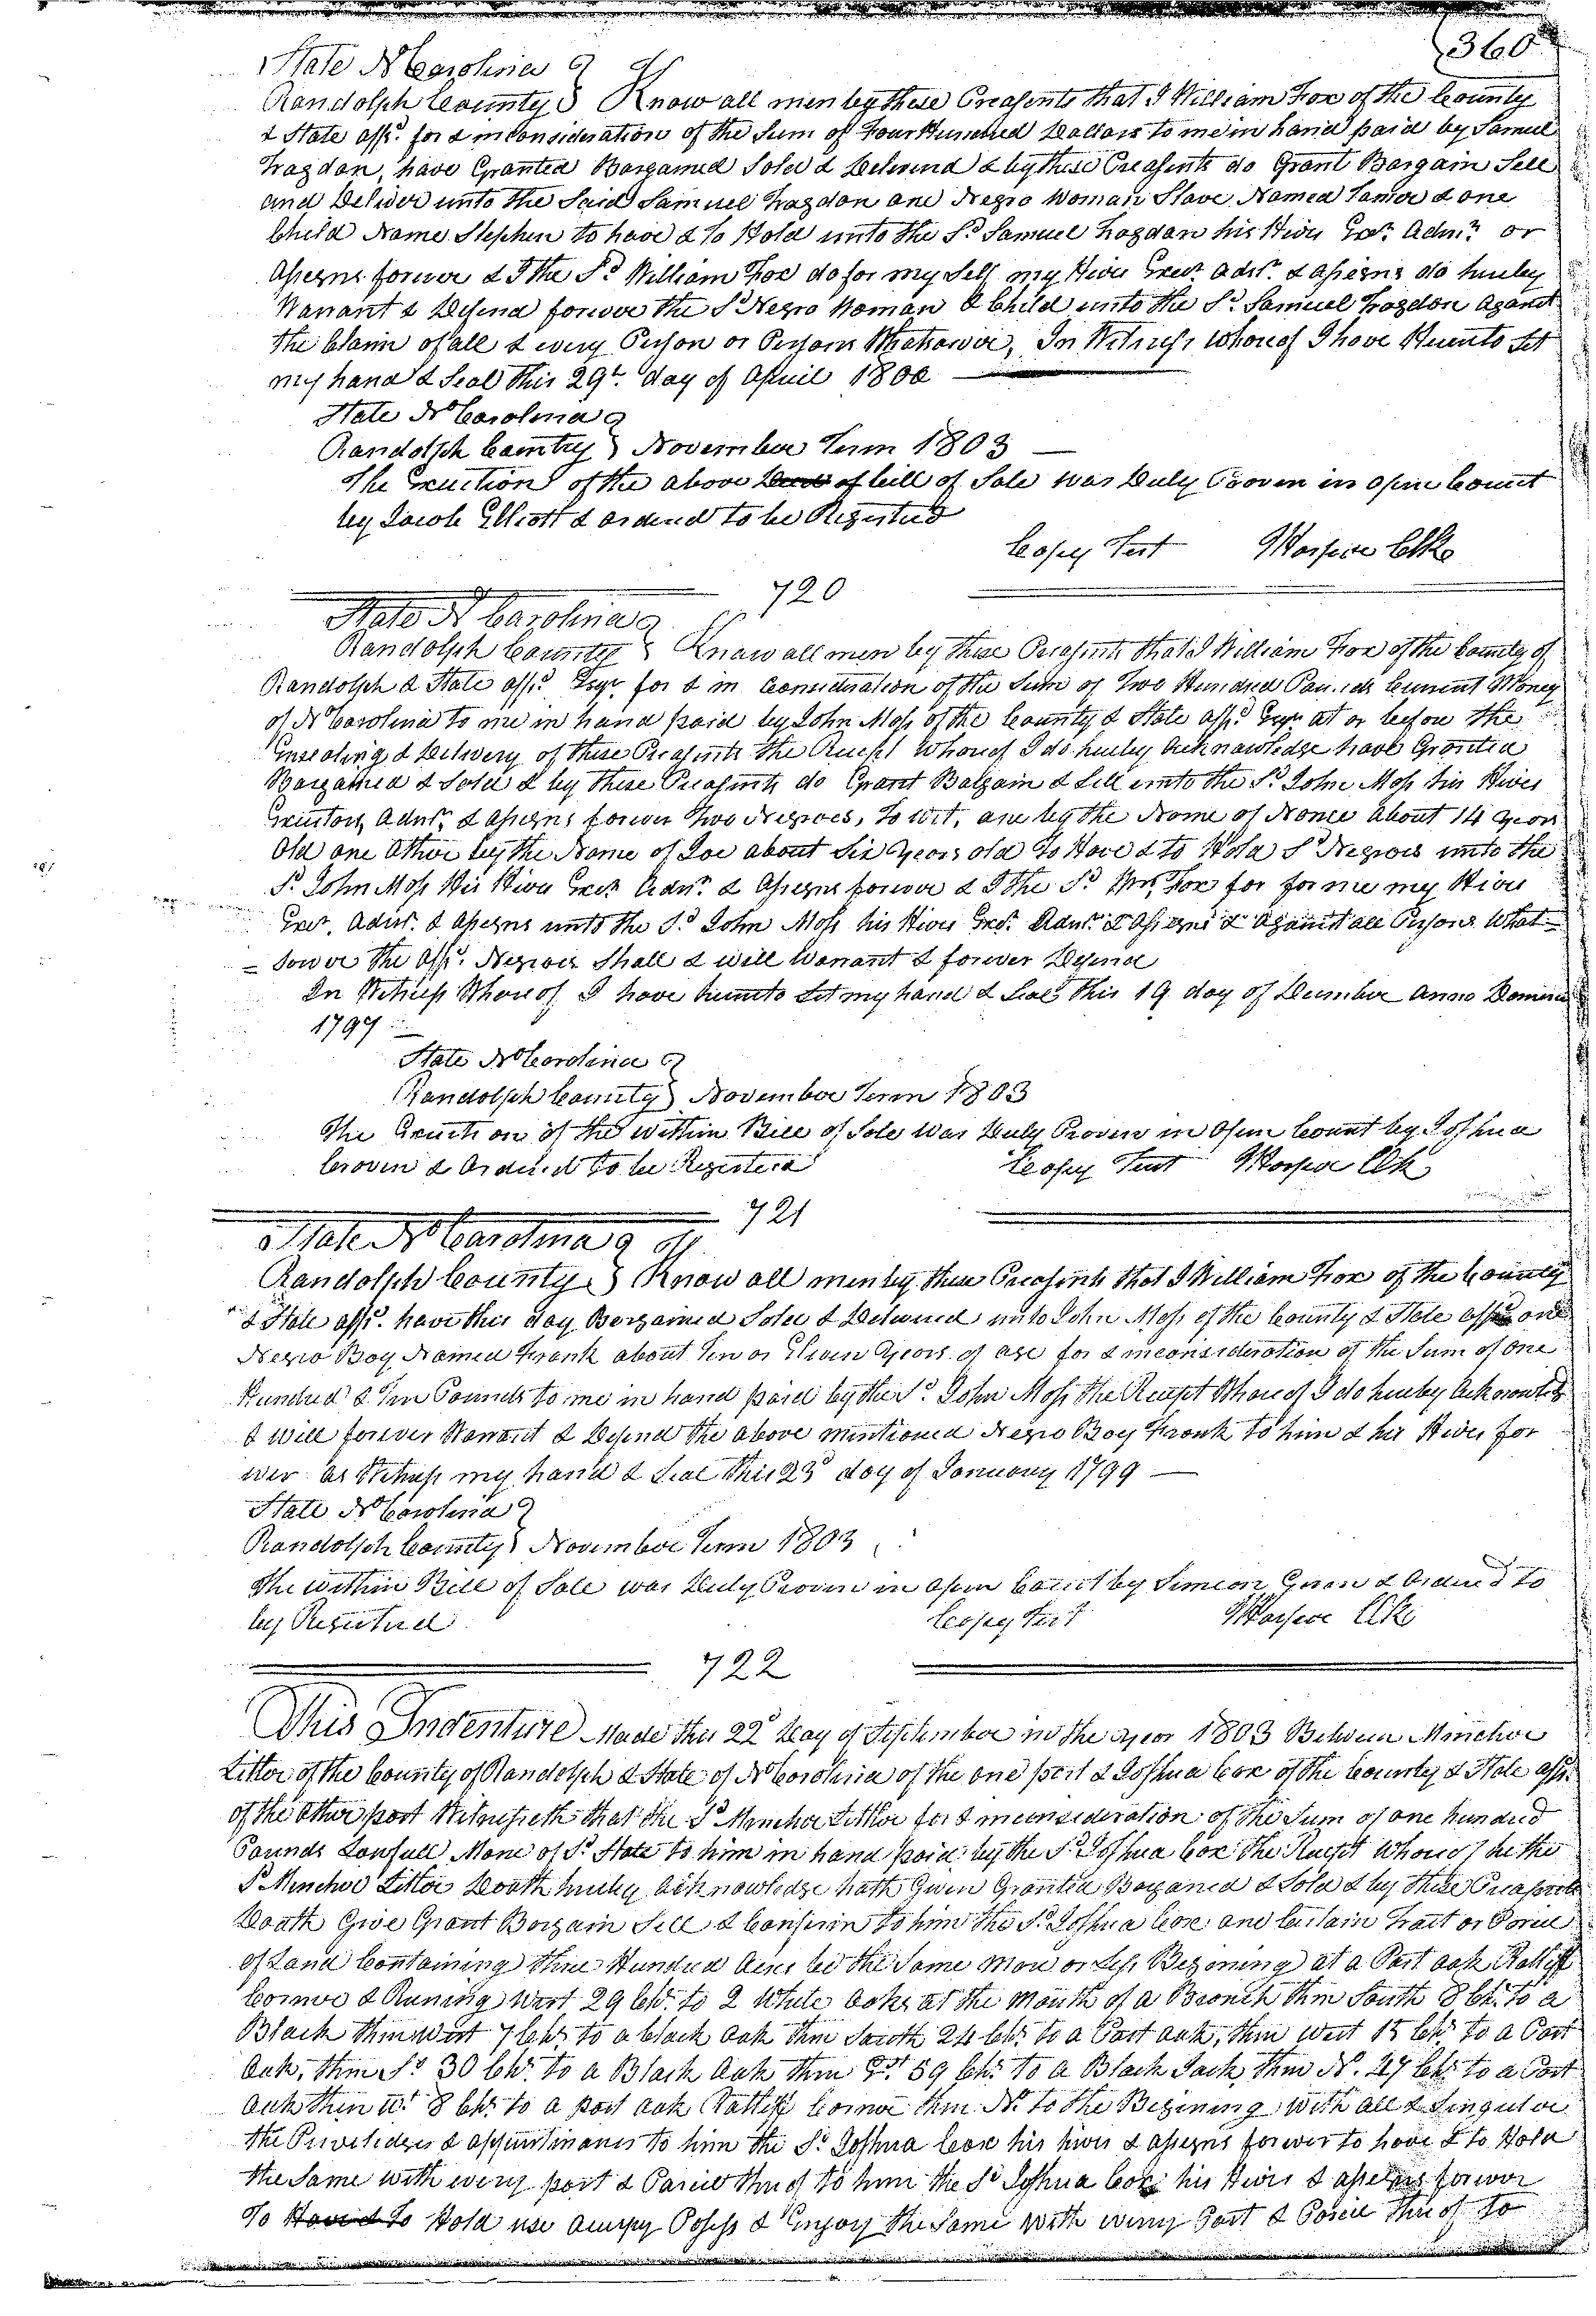 360
State N Carolina
Randolph County Know all men by these Preasents that I William Fox of the County
& State affd. for & in Consideration of the Sum of Four Hundred Dollars to me in hand paid by Samuel
Tragdon, have Granted Bargained Sold & Delivered & by these Preasents do Grant Bargain Sell
and Deliver unto the Said Samuel Tragdon one Negro Woman Slave Named & one
Child Name Stephen to have & to Hold unto the Sd. Samuel Trogdon his Heirs Exr. Admr. or
Assigns forever & I the Sd. William Fox do for my Self my Heirs Exers. adrs. & assigns do hereby
Warrant & Defend forever the Sd Negro Woman & Child unto the Sd. Samuel Trogdon against
the Claim of all & every Person or Persons Whatsoever, In Witness Whereof I have Hereunto Set
my hand & Seal this 29th. day of April 1800
State N Carolina
Randolph County November Term 1803
The Execution of the above Deed of bill of Sale was Duly Proven in open Court
by Jacob Elliott & ordered to be Registered
Copey Test Harper Clk
720
State N Carolina
Randolph County Know all men by these Preasents that I William Fox of the County of
Randolph & State affd. Esqr. for & in Consideration of the Sum of Two Hundred Pounds Current Money
of N Carolina to me in hand paid by John Moss of the County & State affd. Esqr at or before the
Ensealing & Delivery of these Preasents the Receipt Whereof I do hereby Acknowledge have Granted
Bargained & Sold & by these Preasents do Grant Balgain & Sell unto the Sd. John Moss his Heires
Executors, Admrs. & assigns forever Two Negroes, To wit, one by the Name of about 14 years
Old one Other by the Name of Joe about Six years old To Have & to Hold Sd Negroes unto the
Sd. John Moss His Heirs Exers. Admrs. & Assigns forever & I the Sd. Wm. Fox for for me my Heirs
Exrs. Admrs. & assigns unto the Sd. John Moss his Heirs Exrs. Admrs. & Assigns & against all Persons What=
= soever the Affd. Negroes Shall & will Warrant & forever Defend
In Witness Whereof I have hereunto Set my hand & Seal this 19 day of December Anno Domini
1797
State N Carolina
Randolph County November Term 1803
The Execution of the within Bill of Sale was Duly Proven in Open Court by Joshua
Craven & Ordered to be Registered Copey Test Harper Clk
721
State N Carolina
Randolph County Know all men by these Preasents that I William Fox of the County
& State affd. have this day Bargained Sold & Delivered unto John Moss of the County & State affd one
Negro Boy Named Frank about Ten or Eleven years of age for & in consideration of the Sum of One
Hundred & Ten Pounds to me in hand paid by the Sd. John Moss the Receipt Whereof I do hereby Acknowledge
& will forever Warrant & Defend the above mentioned Negro Boy Frank to him & his Heirs for
ever as Witness my hand & Seal this 23d day of January 1799
State N Carolina
Randolph County November Term 1803
The within Bill of Sale was Duly Proven in open Court by Simeon & Ordered to
by Registered Copey Test Harper Clk
722
This Indenture Made this 22d Day of September in the year 1803 Between Mincher
Litter of the County of Randolph & State of N Carolina of the one part & Joshua Cox of the County & State affd.
of the Other part Witnesseth that the Sd Mincher Litter for & in consideration of the Sum of one hundred
Pounds Lawfull Mone of Sd. State to him in hand paid by the Sd. Joshua Cox the Receipt Whereof he the
Sd Mincher Litter Doath hereby acknowledge hath Given Granted Barganed & Sold & by these Preasents
Doath Give Grant Bargain Sell & Confirm to him the Sd. Joshua Cox one Certain Tract or Parcel
of Land Containing three Hundred Acres be the Same More or Less Begining at a Post oak Ratliff
Corner & Runing West 29 Chs. to 2 White Oaks at the Mouth of a Branch then South 8 Ch. to a
Black then West 7 Chs. to a black oak then South 24 Chs. to a Post oak, then West 15 Chs to a Post
Oak, then So. 30 Chs. to a Black Oak then Et. 59 Chs. to a Black Jack then N. 47 Chs. to a Post
Oak then Wt. 8 Chs. to a post oak Ratliff Corner then No. to the Begining with all & Singuler
the Priviledges & appurtinances to him the Sd. Joshua Cox his heirs & assigns forever to have & to Hold
the Same with every part & Parcel thereof to him the Sd Joshua Cox his Heirs & assigns forever
To Have & To Hold use occupy Posess & Enjoy the Same with every Part & Parcel thereof to